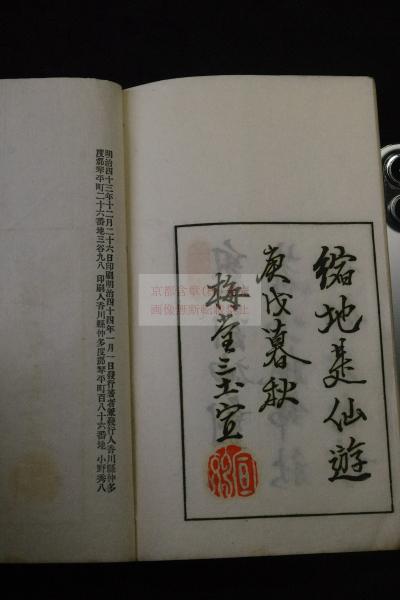 縮地是仙遊
庚戌暮秋
梅堂三土宣
明治四十三年十二月二十六日印刷明治四十四年一月一日發行著者兼發行人香川縣仲多
度郡琴平町二十六番地三谷九八 印刷人香川縣仲多度郡琴平町百八十六番地 小野秀八